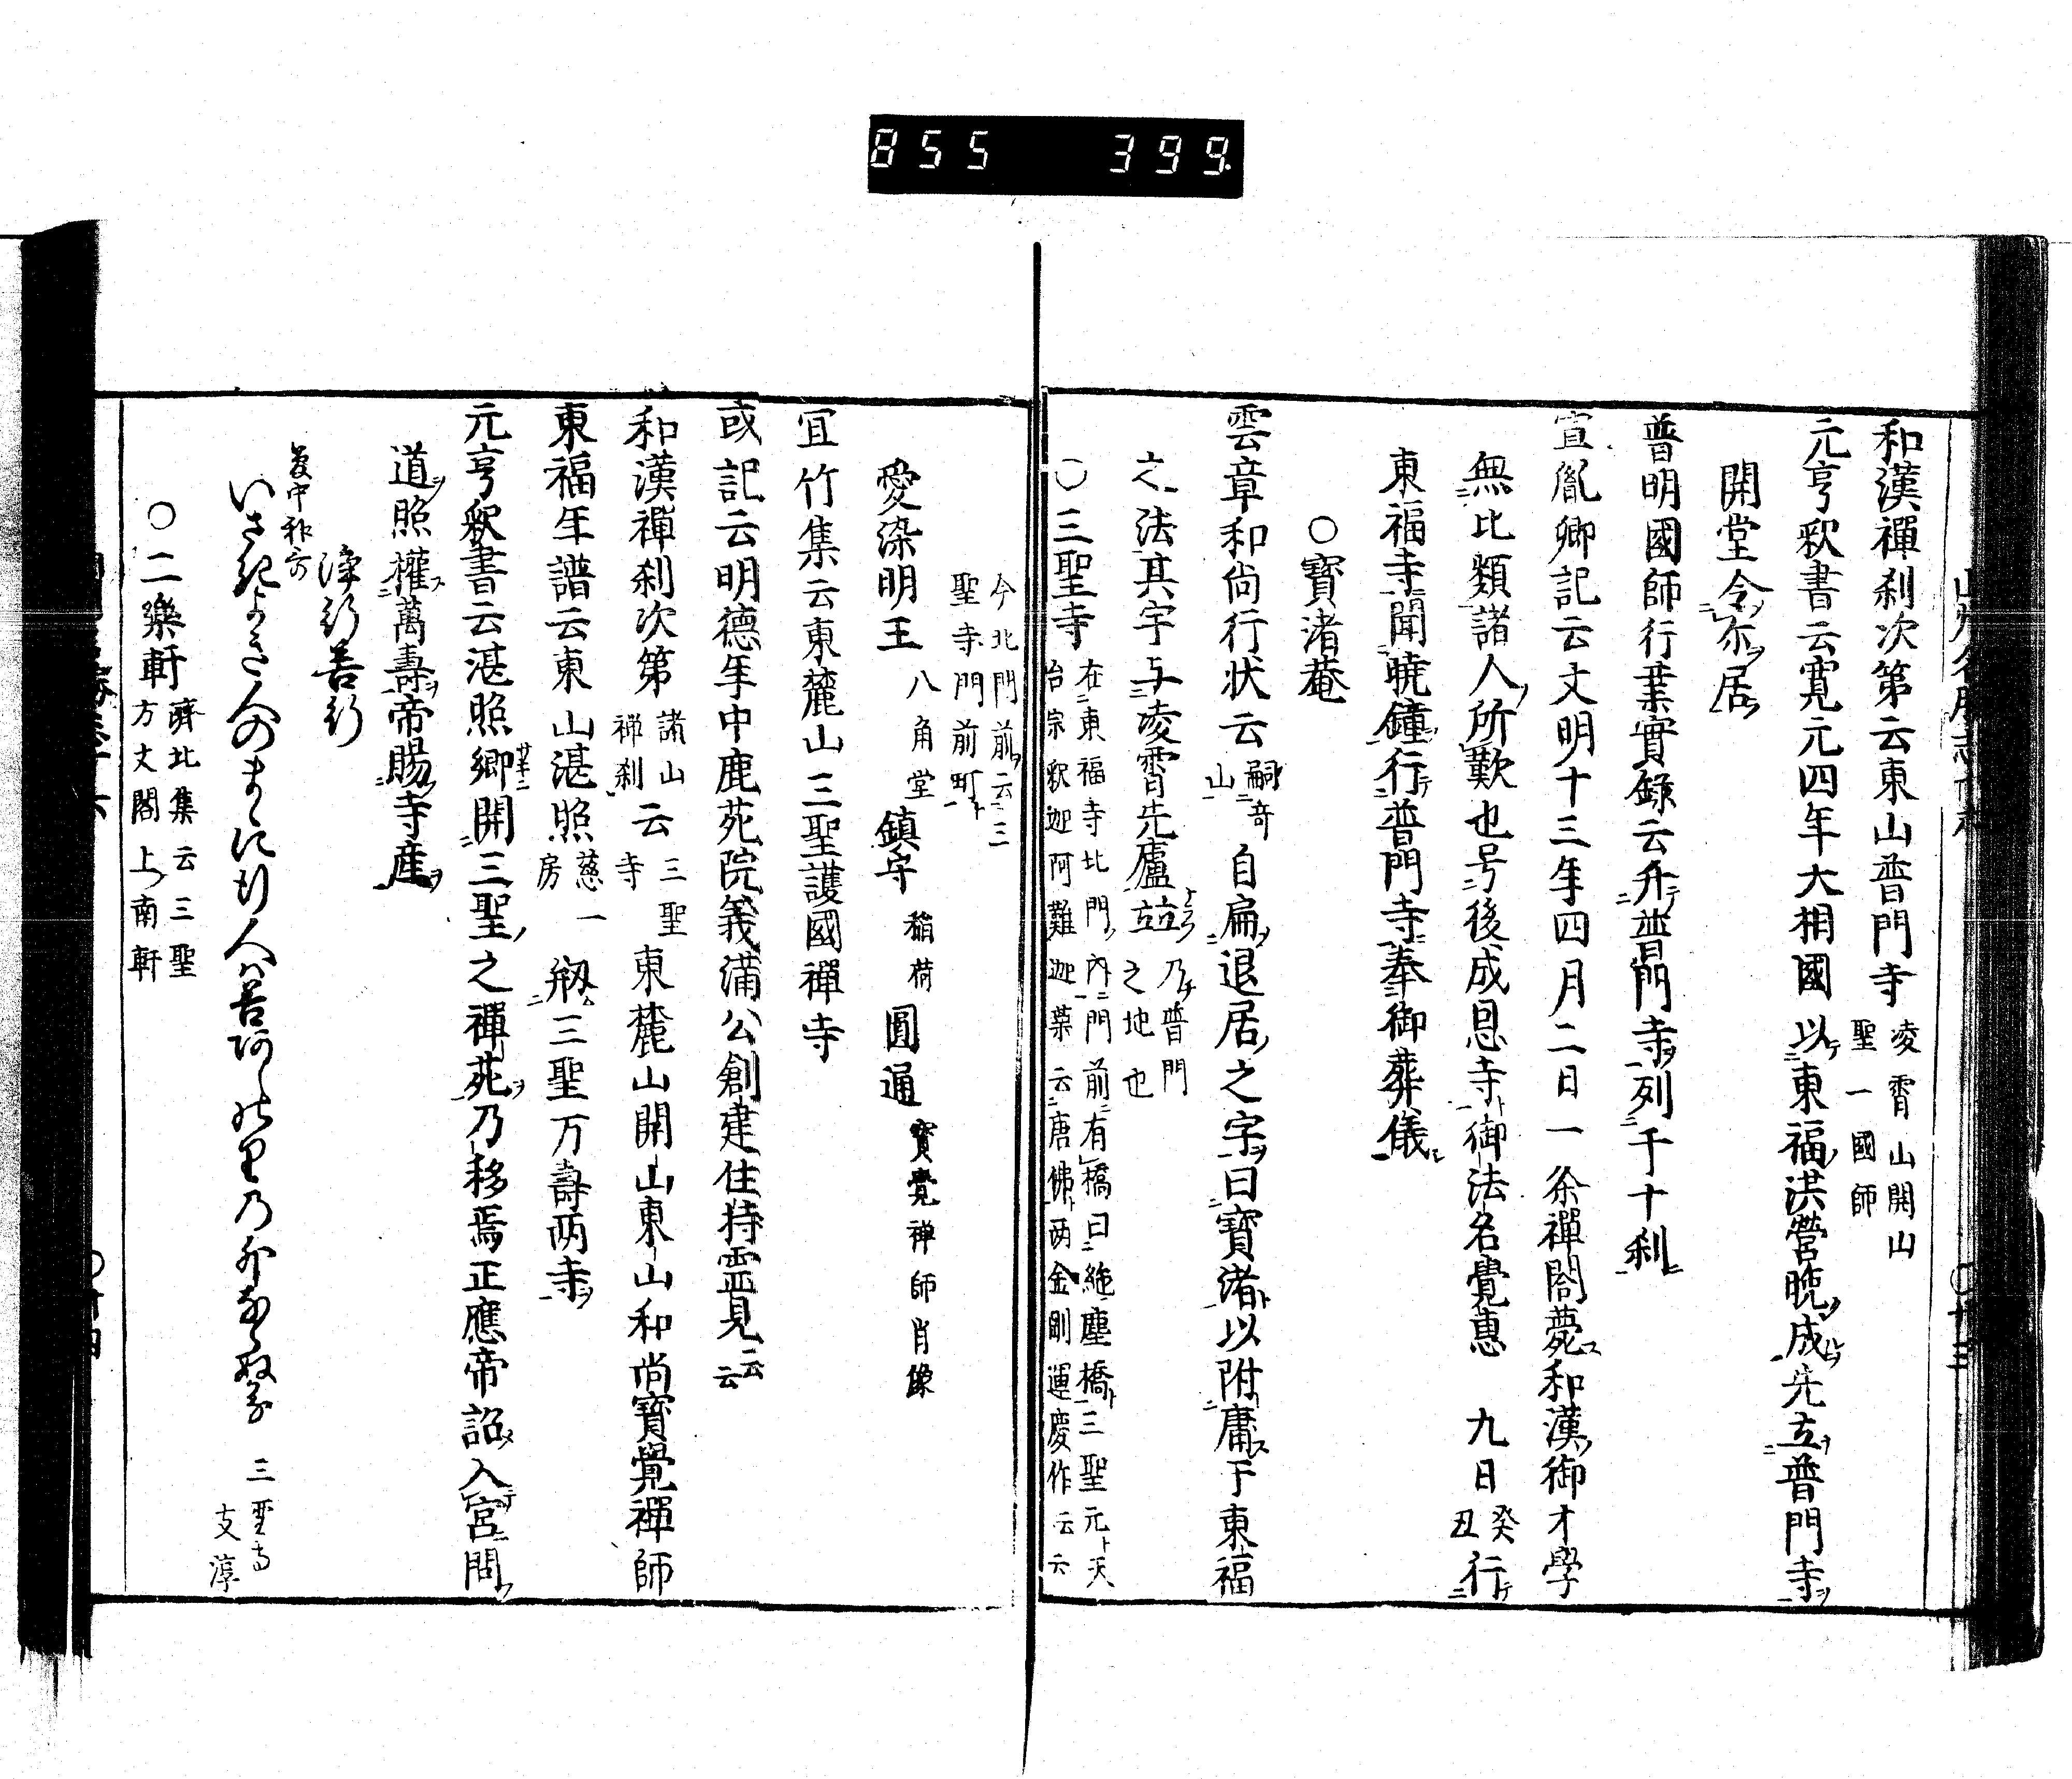 855 399
和漢禪刹次第云東山普門寺 凌霄山開山
聖一國師
元亨釈書云寛元四年大相國以東福洪營晩成先立普門寺
開堂令尓居
普明國師行業實録云升普門寺列千十刹
宣胤卿記云文明十三年四月二日一条禪閤薨和漢御才學
無比類諸人所歎也号後成恩寺御法名覺恵 九日癸丑行
東福寺聞曉鐘行普門寺奉御葬儀
○寶渚菴
雲章和尚行状云嗣奇山自扁退居之字曰寶渚以附庸于東福
之法其宇与凌霄先廬並立 乃普門
之地也
○三聖寺 在東福寺北門内門前有橋曰絶塵橋三聖元天
台宗釈迦阿難迦葉云唐佛両金剛運慶作云云
今北門前云三
聖寺門前町
愛染明王 八角堂 鎮守 稲荷 圓通 寶覺禅師肖像
宜竹集云東麓山三聖護國禪寺
或記云明德年中鹿苑院義満公創建住持霊見云云
和漢禪刹次第 諸山禅刹 云 三聖寺 東麓山開山東山和尚寶覺禪師
東福年譜云東山湛照 慈一房 剏三聖万壽両寺
元亨釈書云湛照郷開三聖之禪苑乃移焉正應帝詔入宮問
道照權萬壽帝賜寺産
浄行善行
いさ紀よき人のまくに行人ハ善
三聖寺
支淳
○二樂軒 濟北集云三聖
方丈閣上南軒